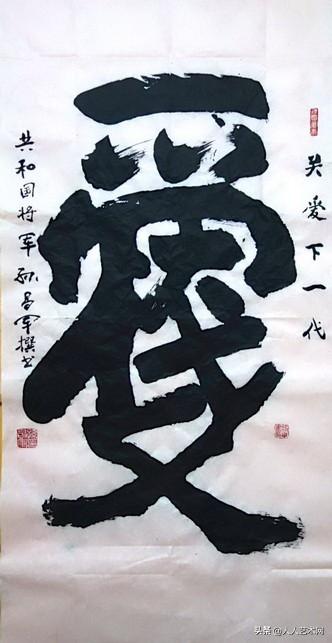 关愛下一代
愛
共和国将军孙昌军撰书
头条 @人人艺术网